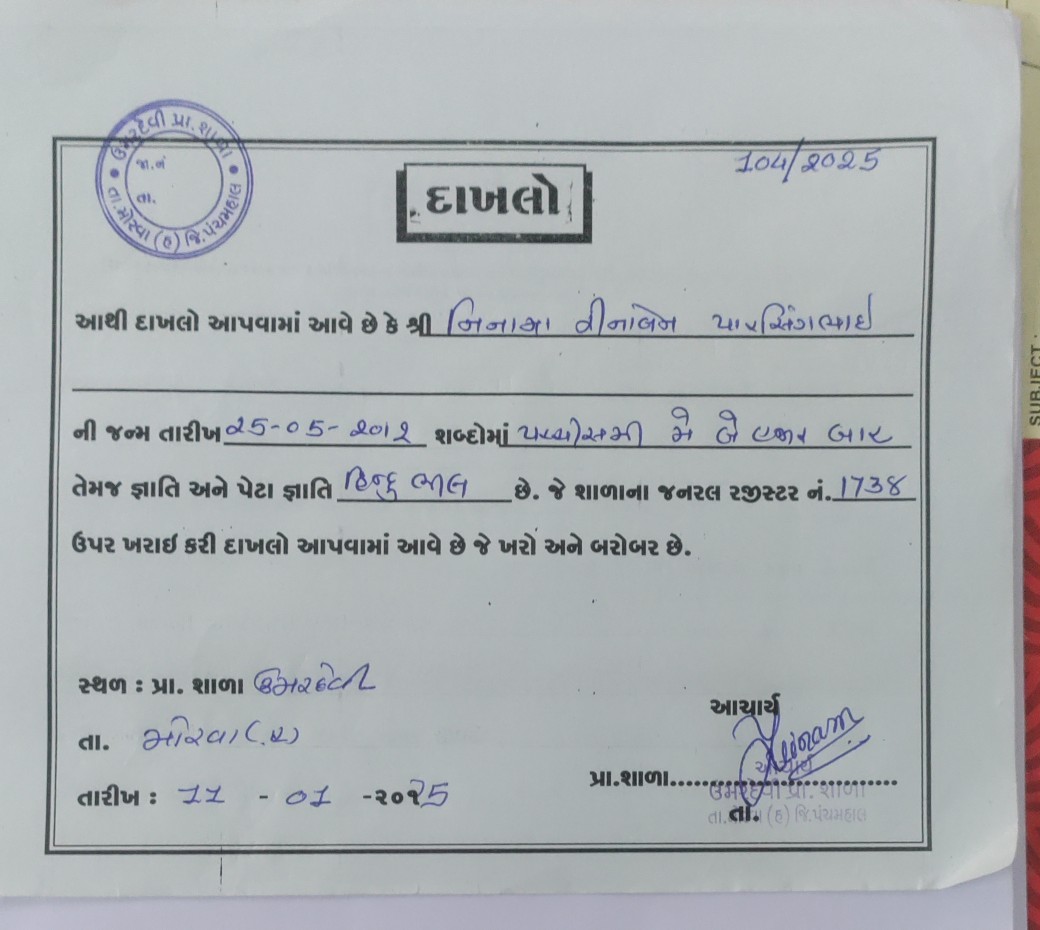 ઉમરદેવી પ્રા. શાળા
જા.નં
તા.
તા.મોરવા (હ) જિ.પંચમહાલ
104/2025
દાખલો
આથી દાખલો આપવામાં આવે છે કે શ્રી નિનામા વીનાબેન પારસિંગભાઇ
ની જન્મ તારીખ ૨5-૦5-૨૦1૨ શબ્દોમાં પચ્ચીસમી મે બે હજાર બાર
તેમજ જ્ઞાતિ અને પેટા જ્ઞાતિ હિન્દુ ભીલ છે. જે શાળાના જનરલ રજીસ્ટર નં. 1738
ઉપર ખરાઇ કરી દાખલો આપવામાં આવે છે જે ખરો અને બરોબર છે.
સ્થળ : પ્રા. શાળા ઉમરદેવી
આચાર્ય
તા. મોરવા (હ)
આચાર્ય
પ્રા.શાળા
તારીખ : 11 - 01 -૨૦૨5
ઉમરદેવી પ્રા. શાળા
તા.
તા.મોરવા (હ) જિ.પંચમહાલ
SUBJECT :